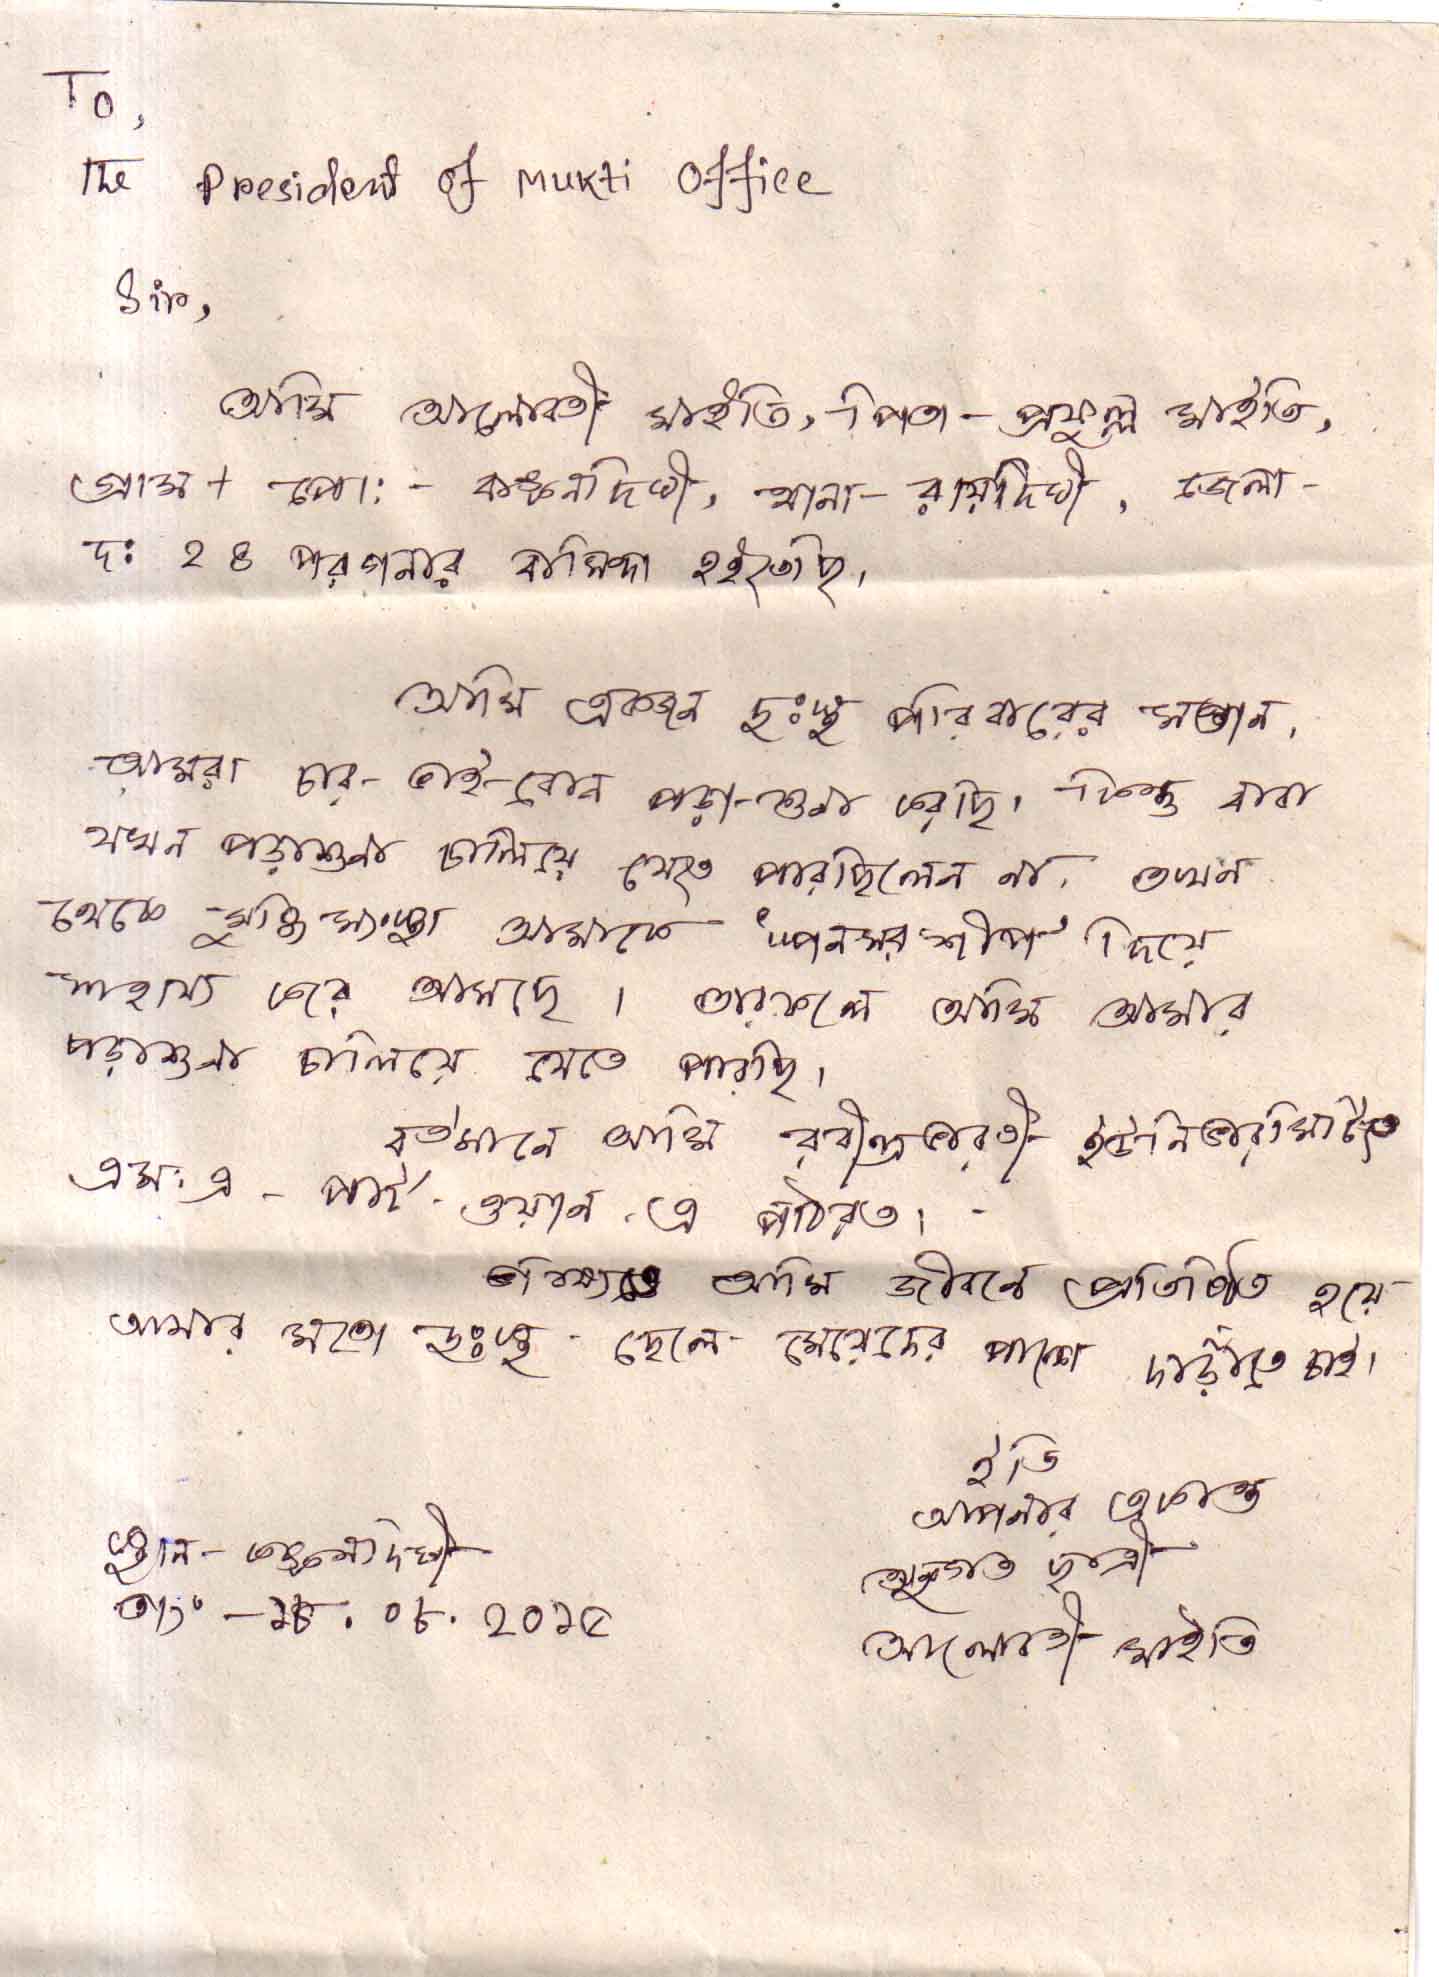 To,
The President of Mukti Office
Sir,
আমি আলোরতী মাইতি, পিতা - প্রফুল্ল মাইতি,
গ্রাম + পো: - কাঞ্চনদিঘী, থানা - রায়দিঘী, জেলা -
দ: ২৪ পরগনার বাসিন্দা হইতেছি।
আমি একজন দুঃস্থ পরিবারের সন্তান,
আমরা চার-ভাই-বোন পড়া-শুনা করেছি। কিন্তু বাবা
যখন পড়াশুনা চালিয়ে যেতে পারছিলেন না, তখন
থেকে মুক্তি সংস্থা আমাকে 'স্পনসরশীপ' দিয়ে
সাহায্য করে আসছে। তারফলে আমি আমার
পড়াশুনা চালিয়ে যেতে পারছি।
বর্তমানে আমি রবীন্দ্রভারতী ইউনিভারসিটিতে
এম.এ - পার্ট - ওয়ান - এ পঠিরত।
ভবিষ্যতে আমি জীবনে প্রতিষ্ঠিত হয়ে
আমার মতো দুঃস্থ - ছেলে - মেয়েদের পাশে দাড়াঁতে চাই।
ইতি
আপনার একান্ত
অনুগত ছাত্রী
আলোরতী মাইতি
স্থান - কাঞ্চনদিঘী
তাং - ১৮. ০৮. ২০১৫